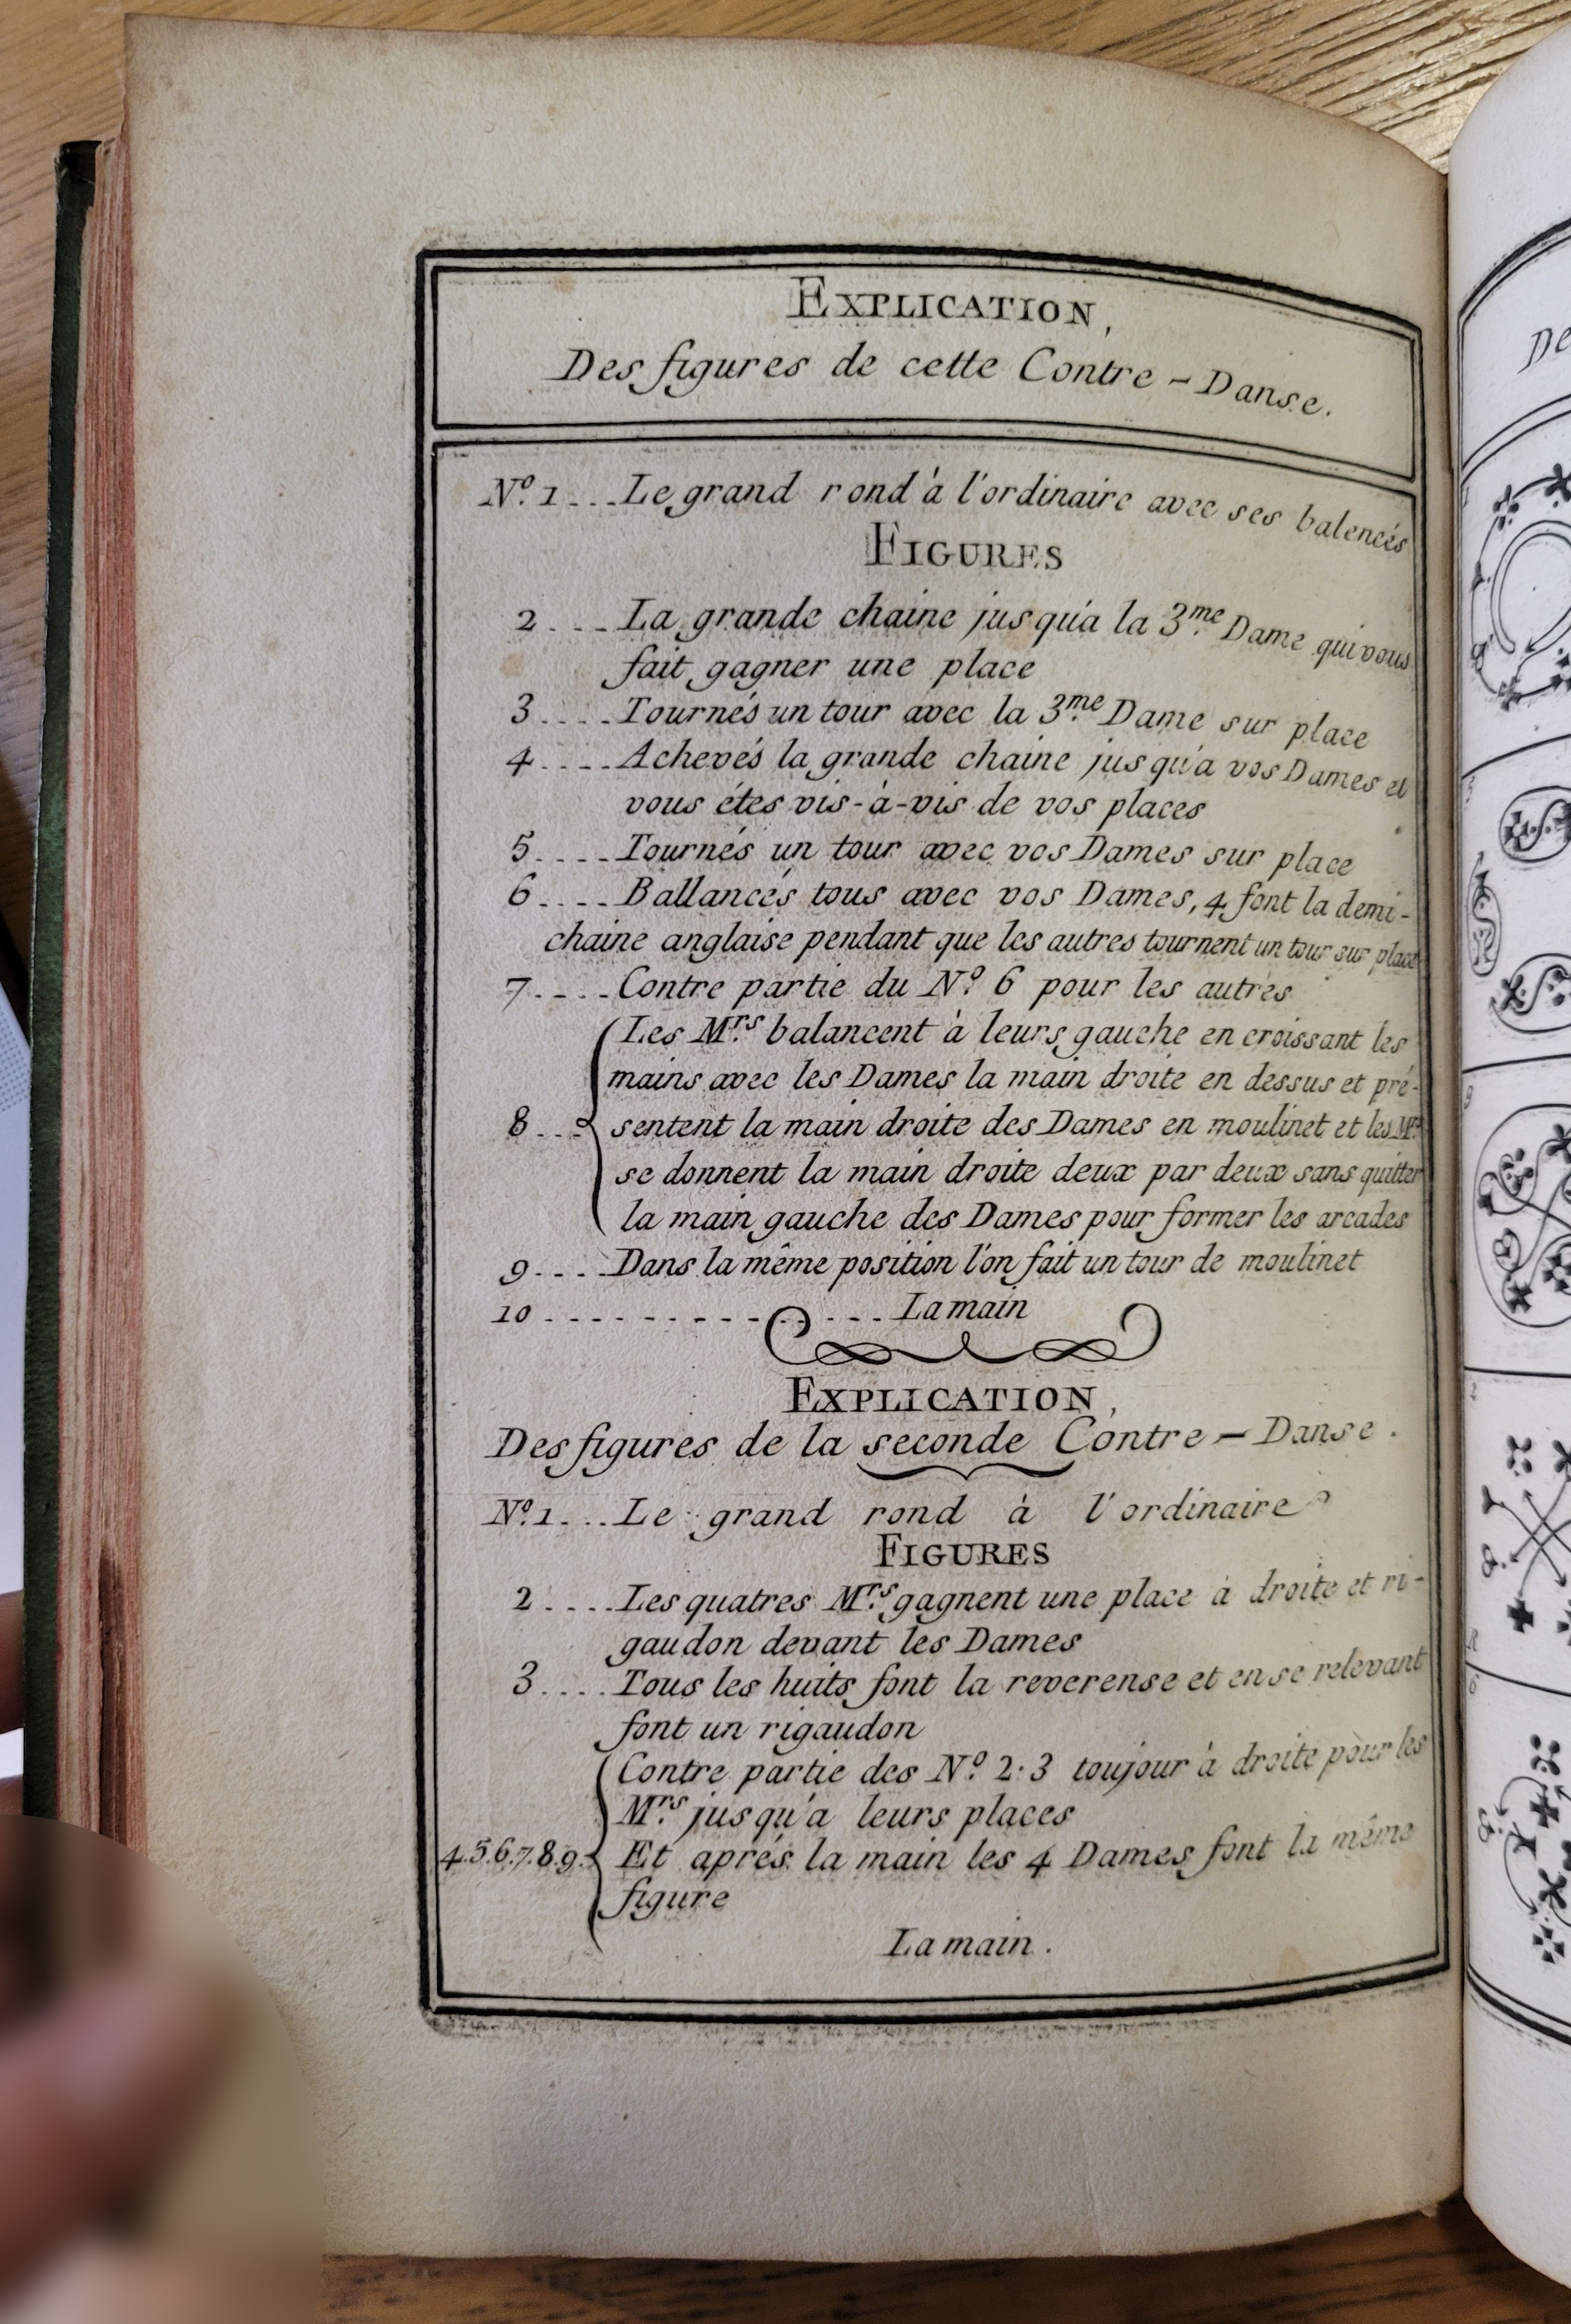 EXPLICATION,
Des figures de cette Contre-Danse.
N.º 1...Le grand rond à l'ordinaire avec ses balencés
FIGURES
2....La grande chaine jusqu'a la 3.me Dame qui vous
fait gagner une place
3....Tournés un tour avec la 3.me Dame sur place
4....Achevés la grande chaine jusqu'a vos Dames et
vous étes vis-à-vis de vos places
5....Tournés un tour avec vos Dames sur place
6....Ballancés tous avec vos Dames, 4 font la demi-
chaine anglaise pendant que les autres tournent un tour sur place
7....Contre partie du N.º 6 pour les autres
Les M.rs balancent à leurs gauche en croissant les
mains avec les Dames la main droite en dessus et pré-
8...sentent la main droite des Dames en moulinet et les M.rs
se donnent la main droite deux par deux sans quitter
la main gauche des Dames pour former les arcades
9....Dans la même position l'on fait un tour de moulinet
10..............La main
EXPLICATION,
Des figures de la seconde Contre-Danse.
N.º 1...Le grand rond à l'ordinaire
FIGURES
2....Les quatres M.rs gagnent une place à droite et ri-
gaudon devant les Dames
3....Tous les huits font la reverense et en se relevant
font un rigaudon
Contre partie des N.º 2.3 toujour à droite pour les
M.rs jusqu'a leurs places
4.5.6.7.8.9. Et aprés la main les 4 Dames font la même
figure
La main.
De